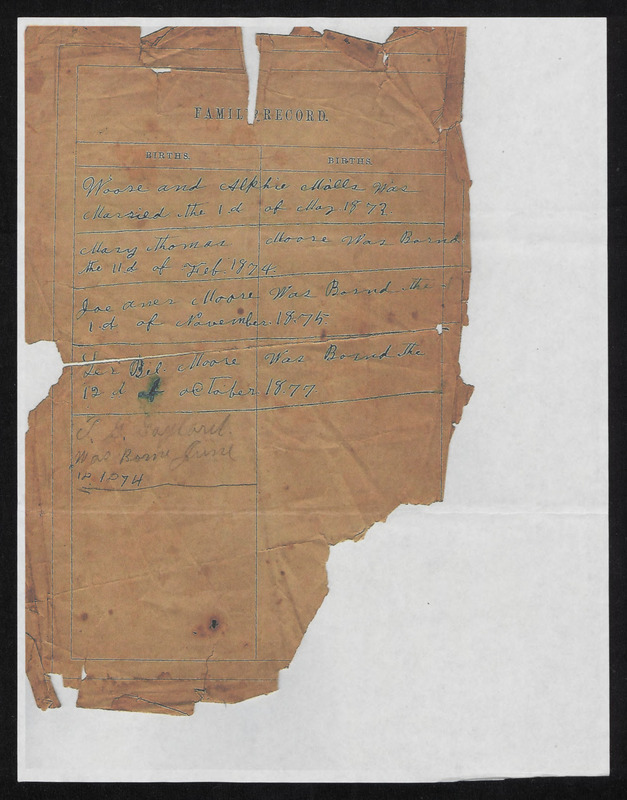 FAMILY RECORD.
BIRTHS. BIRTHS.
Moore and Alphie Mills Was
Married the 1 d of May 1873
Mary Thomas Moore Was Bornd
the 11 d of Feb. 1874
Joe aner Moore Was Bornd the
1 d of November 1875
Bel. Moore Was Bornd the
12 d of October 1877.
T. G. Gaylard
Was Borne June
1874